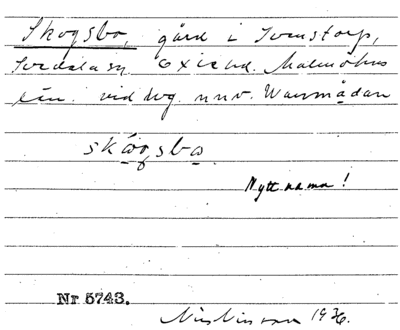 Skogsbo, gård i Svenstorp,
Svedala sn. Oxie hd. Malmöhus
län. vid lvg. nnv. Warmådan
skǫgsbo
Nytt namn!
Nr 5743.
Nils Nilsson 1936.